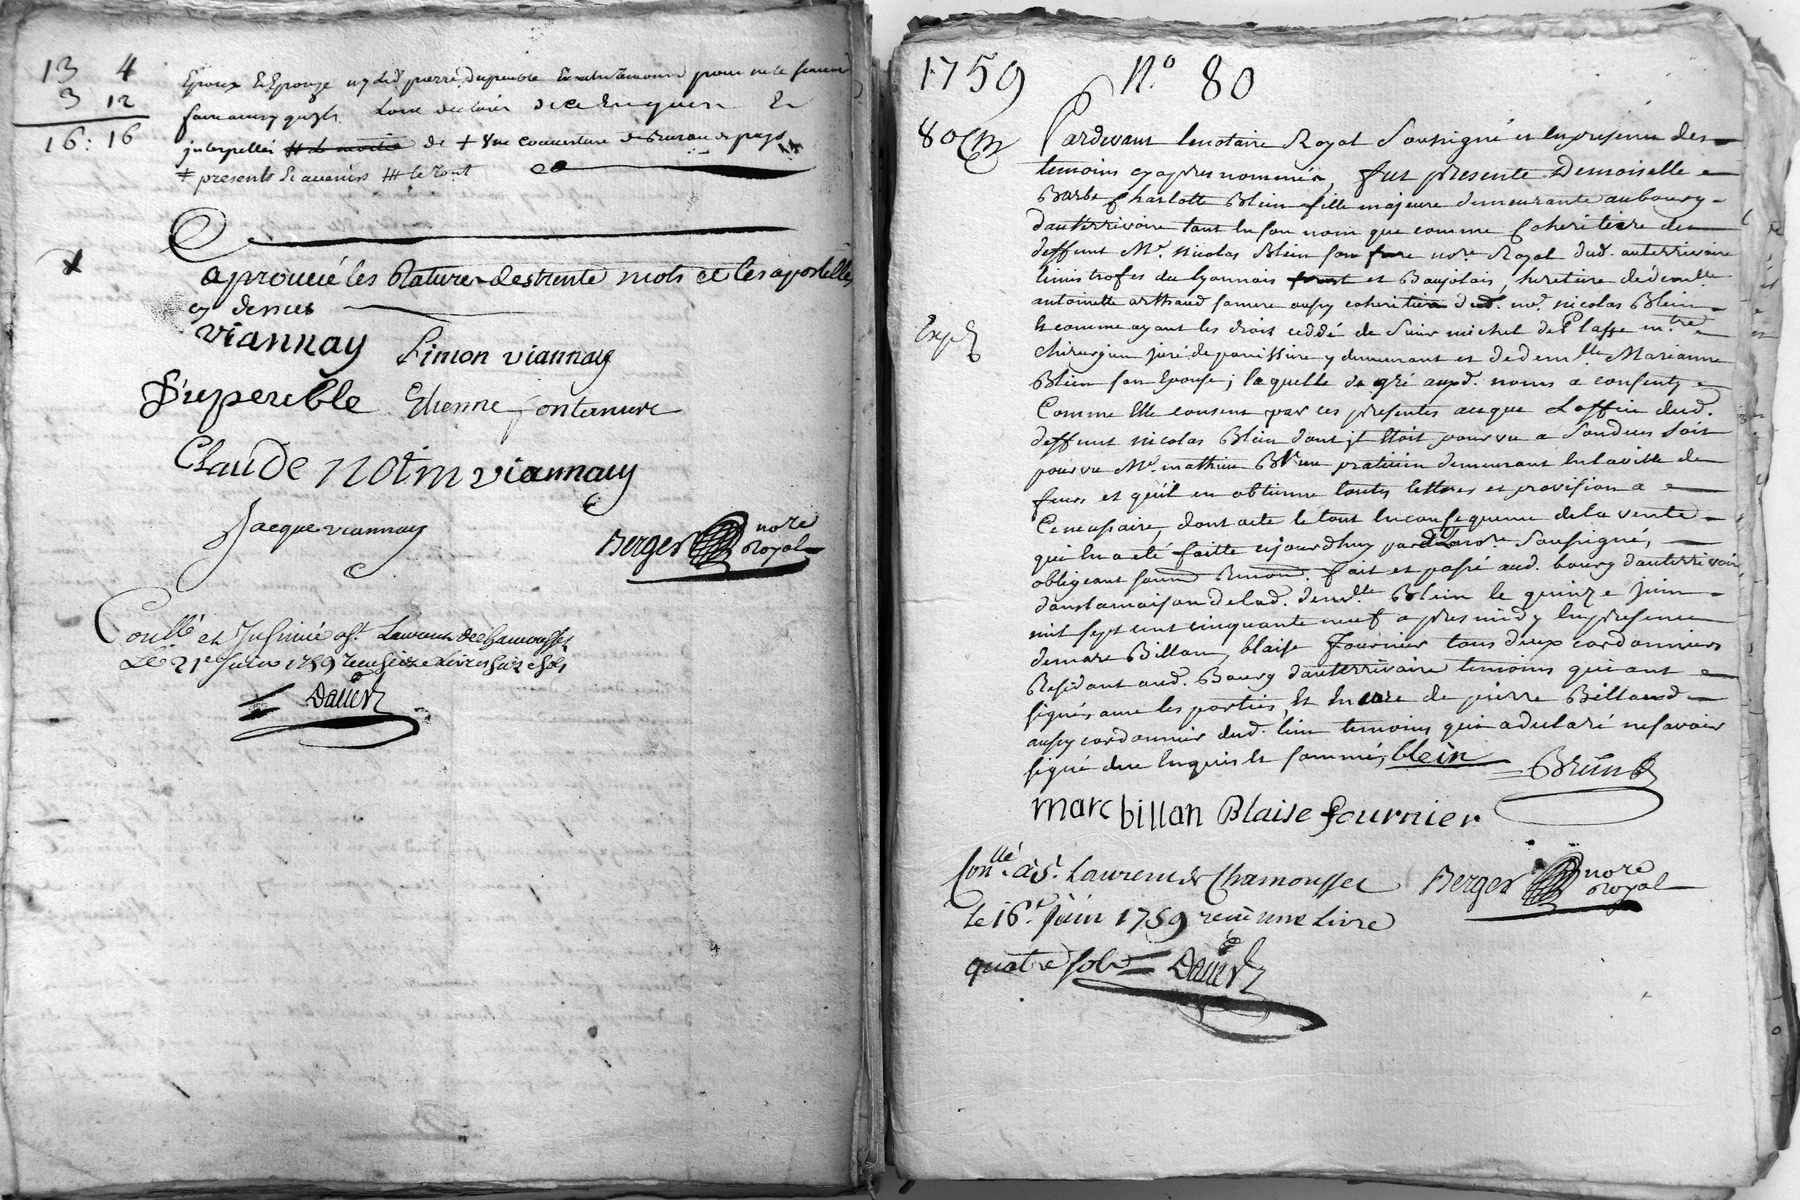 13 4
3 12
16: 16
Epoux & Epouze ny led pierre Duperuble pour ne le scavoir
faire aussy quils ont declarés de ce Enquis Et
interpellés de + Une couverture de Bureau de pays
+ presents & avenirs ### le tout
aprouvé les Rature destrente mots et les apostelles
cy dessus
viannay Simon viannay
Duperuble Etienne fontanierc
Claude Notin viannay
Jacque viannay
Berger nore
Royal
Conllé et Insinué a St Laurent de Chamousset
Le 21e Juin 1759 receu seize Livres seize sols
Dauer
1759 No 80
80 Cm
Expé
Pardevant le notaire Royal Soussigné et en presence des
temoins cy apres nommés, fut presente Demoiselle
Barbe Charlotte Blein fille majeure demeurante au bourg
dauterrivoire tant en son nom que comme Coheritiere de
deffunt Me. nicolas Blein son frere nore. Royal dud. auterrivoire
limitrofes du lyonnais forest et Baujolais, heretiere de demlle
antoinette arthaud sa mere aussy coheritiere dud. me. nicolas Blein
Et comme ayant les droit ceddé de Sieur michel de Plasse mtre
chirurgien juré de panissiere y demeurant et de demlle Marianne
Blein son Epouse; laquelle de gré auxd. noms a consenty
Comme Elle consent par ces presentes a ce que Loffice dud.
deffunt nicolas Blein dont jl Etoit pourvu a Son deces soit
pourvu Me. mathieu Brun praticien demeurant en la ville de
feurs et quil en obtienne toutes lettres et provision a
Ce necessaire, dont acte le tout En consequence de la vente
qui En a eté faitte cejourdhuy pardt. le nore. Soussigné,
obligeant soumt. Renont. fait et passé aud. bourg dauterrivoire
dans la maison de lad. demlle Blein le quinze juin
mil sept cent cinquante neuf apres midy En presence
de marc Billan, blaise Fournier tous deux cordonniers
Residant aud. Bourg dauterrivoire temoins qui ont
signés avec les parties, Et Encore de pierre Billand
aussy cordonnier dud. lieu temoins qui a declaré ne savoir
signé de ce Enquis Et sommé, blein
Brun
marc billan Blaise fournier
Conllé à St. Laurent de Chamousset
Berger nore
Royal
le 16e. Juin 1759 receu une Livre
quatre sols Dauer